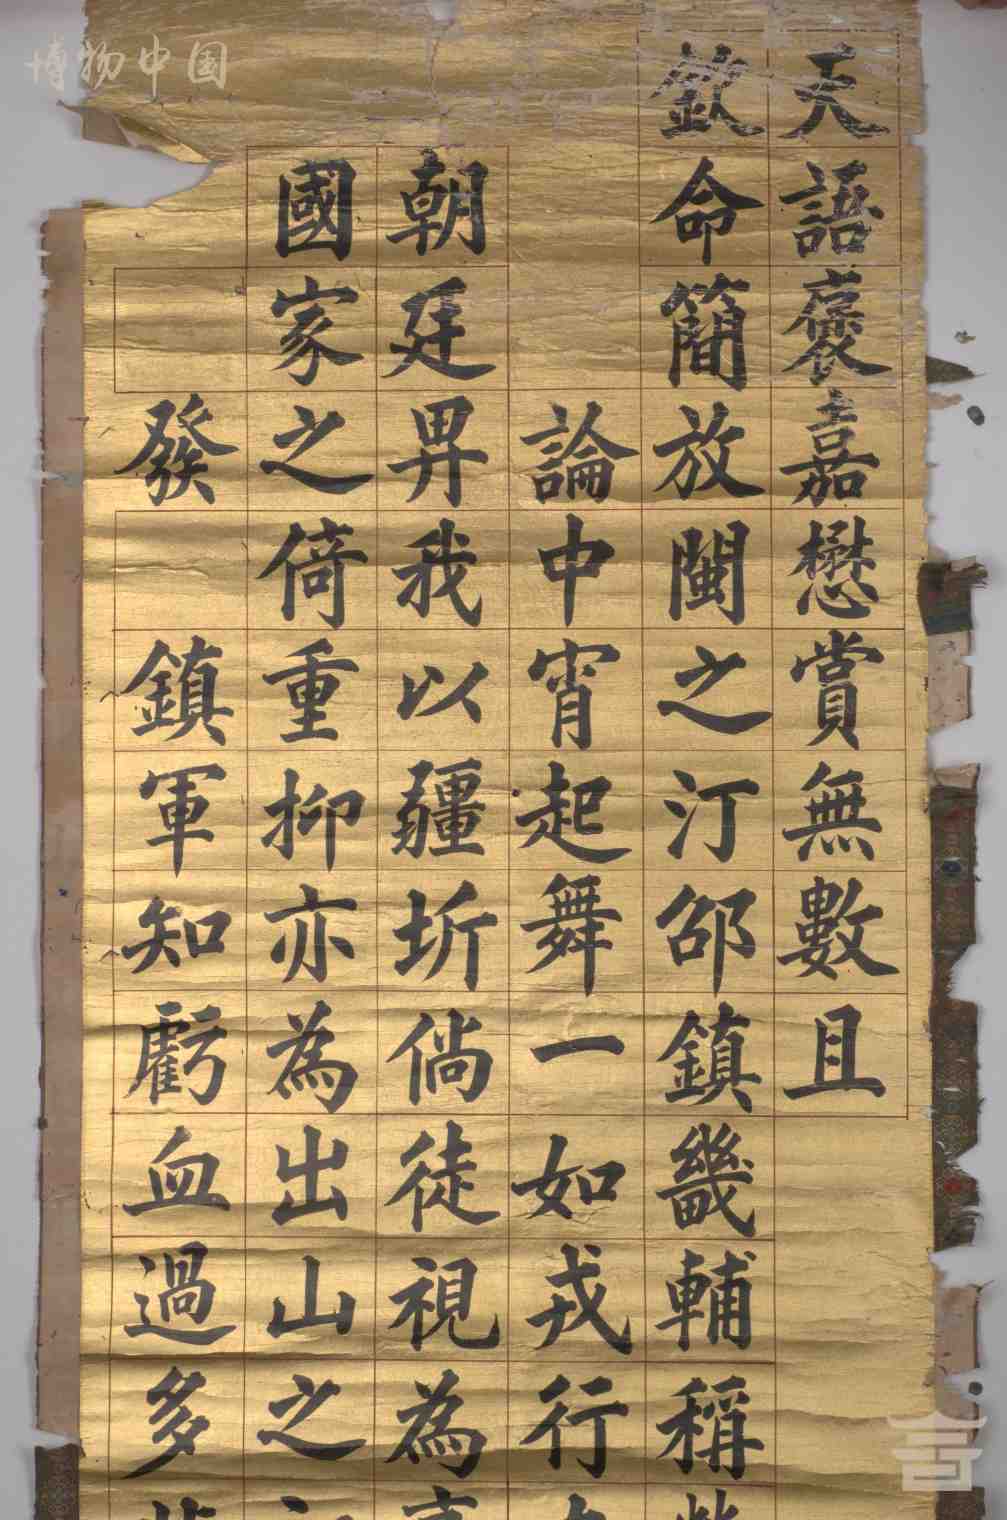 天語褒嘉懋賞無數且
欽命簡放閩之汀邵鎮畿輔稱
論中宵起舞一如戎行
朝廷畀我以疆圻倘徒視為
國家之倚重抑亦為出山之
發鎮軍知虧血過多
博物中国